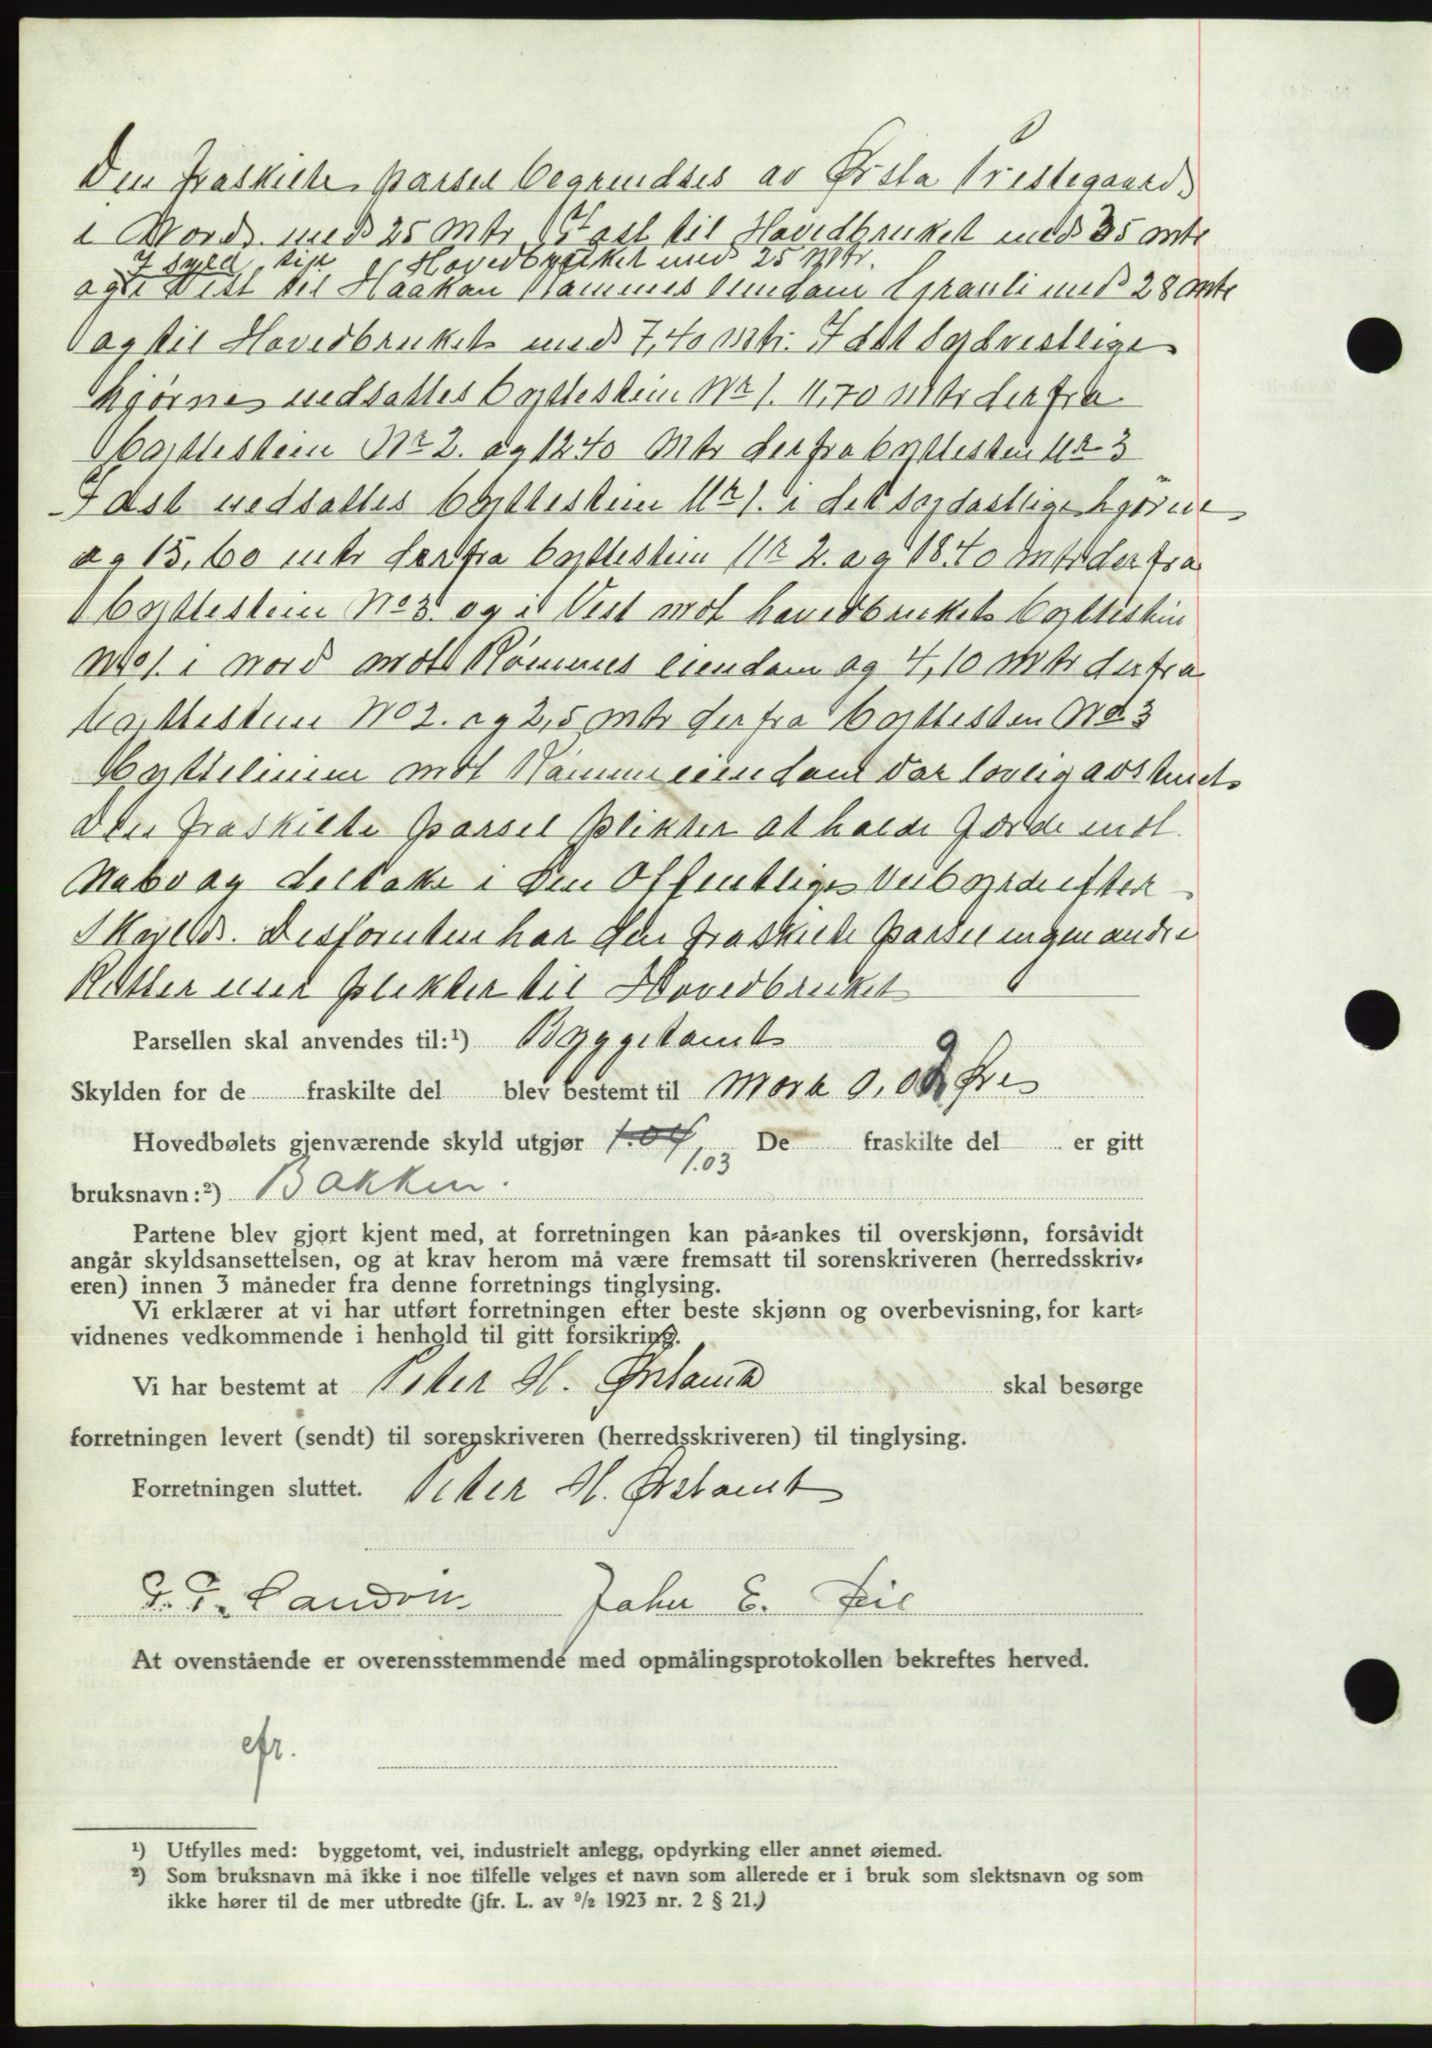 Den fraskilte parsel begrendses av Ørsta Prestegaard
i Nord med 25 Mtr I øst til Hovedbruket med 35 Mtr
I Syd til Hovedbruket med 25 Mtr.
og i Vest til Haakon Rømmes eiendom Granli med 28 Mtr
og til Hovedbruket med 7,40 Mtr. I det Sydvestlige
hjørne nedsattes byttestein Nr 1. 11,70 Mtr derfra
byttestein Nr 2. og 12.40 Mtr derfra byttestein Nr 3
I øst nedsattes byttestein Nr 1. i det sydøstlige hjørne
og 15,60 mtr derfra byttestein Nr 2. og 18.40 Mtr derfra
byttestein No 3. og i Vest mot hovedbruket byttestein
No 1. i nord mot Rømmes eiendom og 4,10 Mtr derfra
byttestein No 2. og 2,5 Mtr derfra byttesten No 3
byttelinien mot Rømmes eiendom var lovlig avstukket
Den fraskilte parsel plikter at holde gjerde mot
Nabo og deltake i den Offentlige Veibyrde efter
Skyld. Desforuten har den fraskilte parsel ingen andre
Retter eller plikter til Hovedbruket
Parsellen skal anvendes til:¹) Byggetomt
Skylden for de fraskilte del blev bestemt til Mark 0,02 Øre
Hovedbølets gjenværende skyld utgjør 1.04 1.03 De fraskilte del er gitt
bruksnavn:²) Bakken.
Partene blev gjort kjent med, at forretningen kan på-ankes til overskjønn, forsåvidt
angår skyldsansettelsen, og at krav herom må være fremsatt til sorenskriveren (herredsskriv-
eren) innen 3 måneder fra denne forretnings tinglysing.
Vi erklærer at vi har utført forretningen efter beste skjønn og overbevisning, for kart-
vidnenes vedkommende i henhold til gitt forsikring.
Vi har bestemt at Peter H. Ørstavik skal besørge
forretningen levert (sendt) til sorenskriveren (herredsskriveren) til tinglysing.
Forretningen sluttet. Peter H. Ørstavik
John E.
At ovenstående er overensstemmende med opmålingsprotokollen bekreftes herved.
efr.
¹) Utfylles med: byggetomt, vei, industrielt anlegg, opdyrking eller annet øiemed.
²) Som bruksnavn må ikke i noe tilfelle velges et navn som allerede er i bruk som slektsnavn og som
ikke hører til de mer utbredte (jfr. L. av 9/2 1923 nr. 2 § 21.)